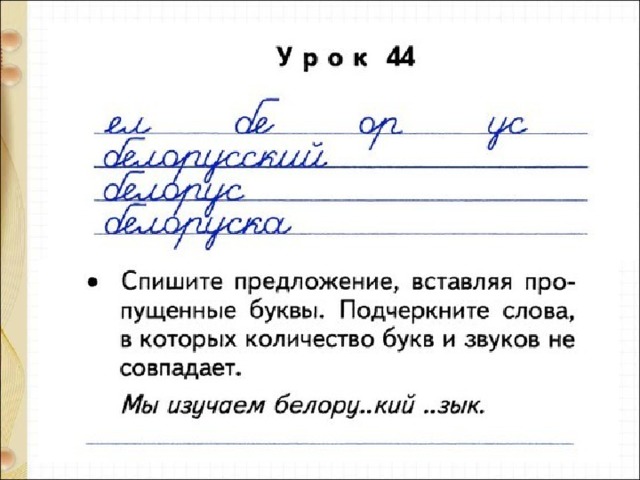 Урок 44
ел бе ор ус
белорусский
белорус
белоруска
• Спишите предложение, вставляя про-
пущенные буквы. Подчеркните слова,
в которых количество букв и звуков не
совпадает.
Мы изучаем белору..кий ..зык.